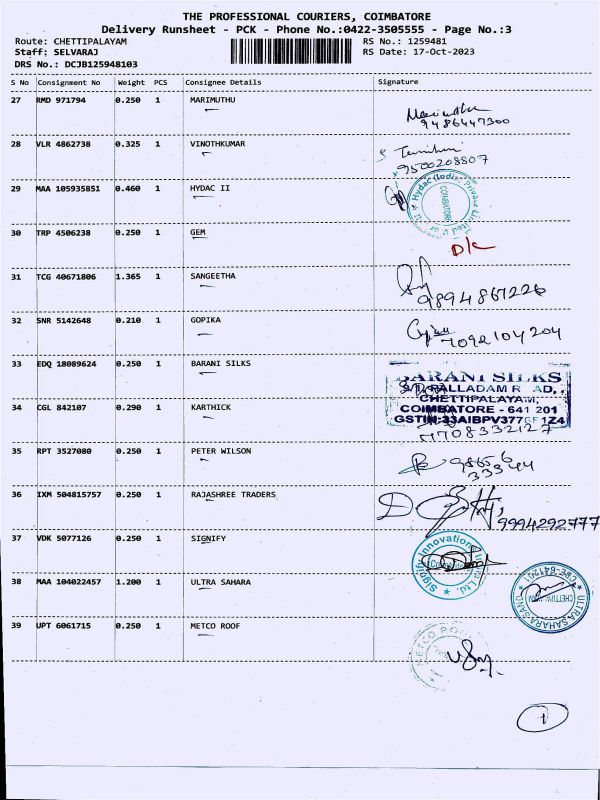 THE PROFESSIONAL COURIERS, COIMBATORE
Delivery Runsheet - PCK - Phone No.:0422-3505555 - Page No.:3
Route: CHETTIPALAYAM RS No.: 1259481
Staff: SELVARAJ RS Date: 17-Oct-2023
DRS No.: DCJB125948103
S No Consignment No Weight PCS Consignee Details Signature
27 RMD 971794 0.250 1 MARIMUTHU
Marimuthu
9486447300
28 VLR 4862738 0.325 1 VINOTHKUMAR
9500208807
29 MAA 105935851 0.460 1 HYDAC II
Hydac (India) Private Limited
COIMBATORE
30 TRP 4506238 0.250 1 GEM
D/c
31 TCG 40671806 1.365 1 SANGEETHA
9894867226
32 SNR 5142648 0.210 1 GOPIKA
7092104204
33 EDQ 18089624 0.250 1 BARANI SILKS
BARANI SILKS
PALLADAM ROAD,
CHETTIPALAYAM,
COIMBATORE - 641 201
34 CGL 842107 0.290 1 KARTHICK
9708332127
35 RPT 3527080 0.250 1 PETER WILSON
98656
33344
36 IXM 504815757 0.250 1 RAJASHREE TRADERS
9994292777
37 VDK 5077126 0.250 1 SIGNIFY
Signify Innovations Ltd.
38 MAA 104022457 1.200 1 ULTRA SAHARA
ULTRA SAHARA SAND
CBE-641201
39 UPT 6061715 0.250 1 METCO ROOF
METCO ROOF
1